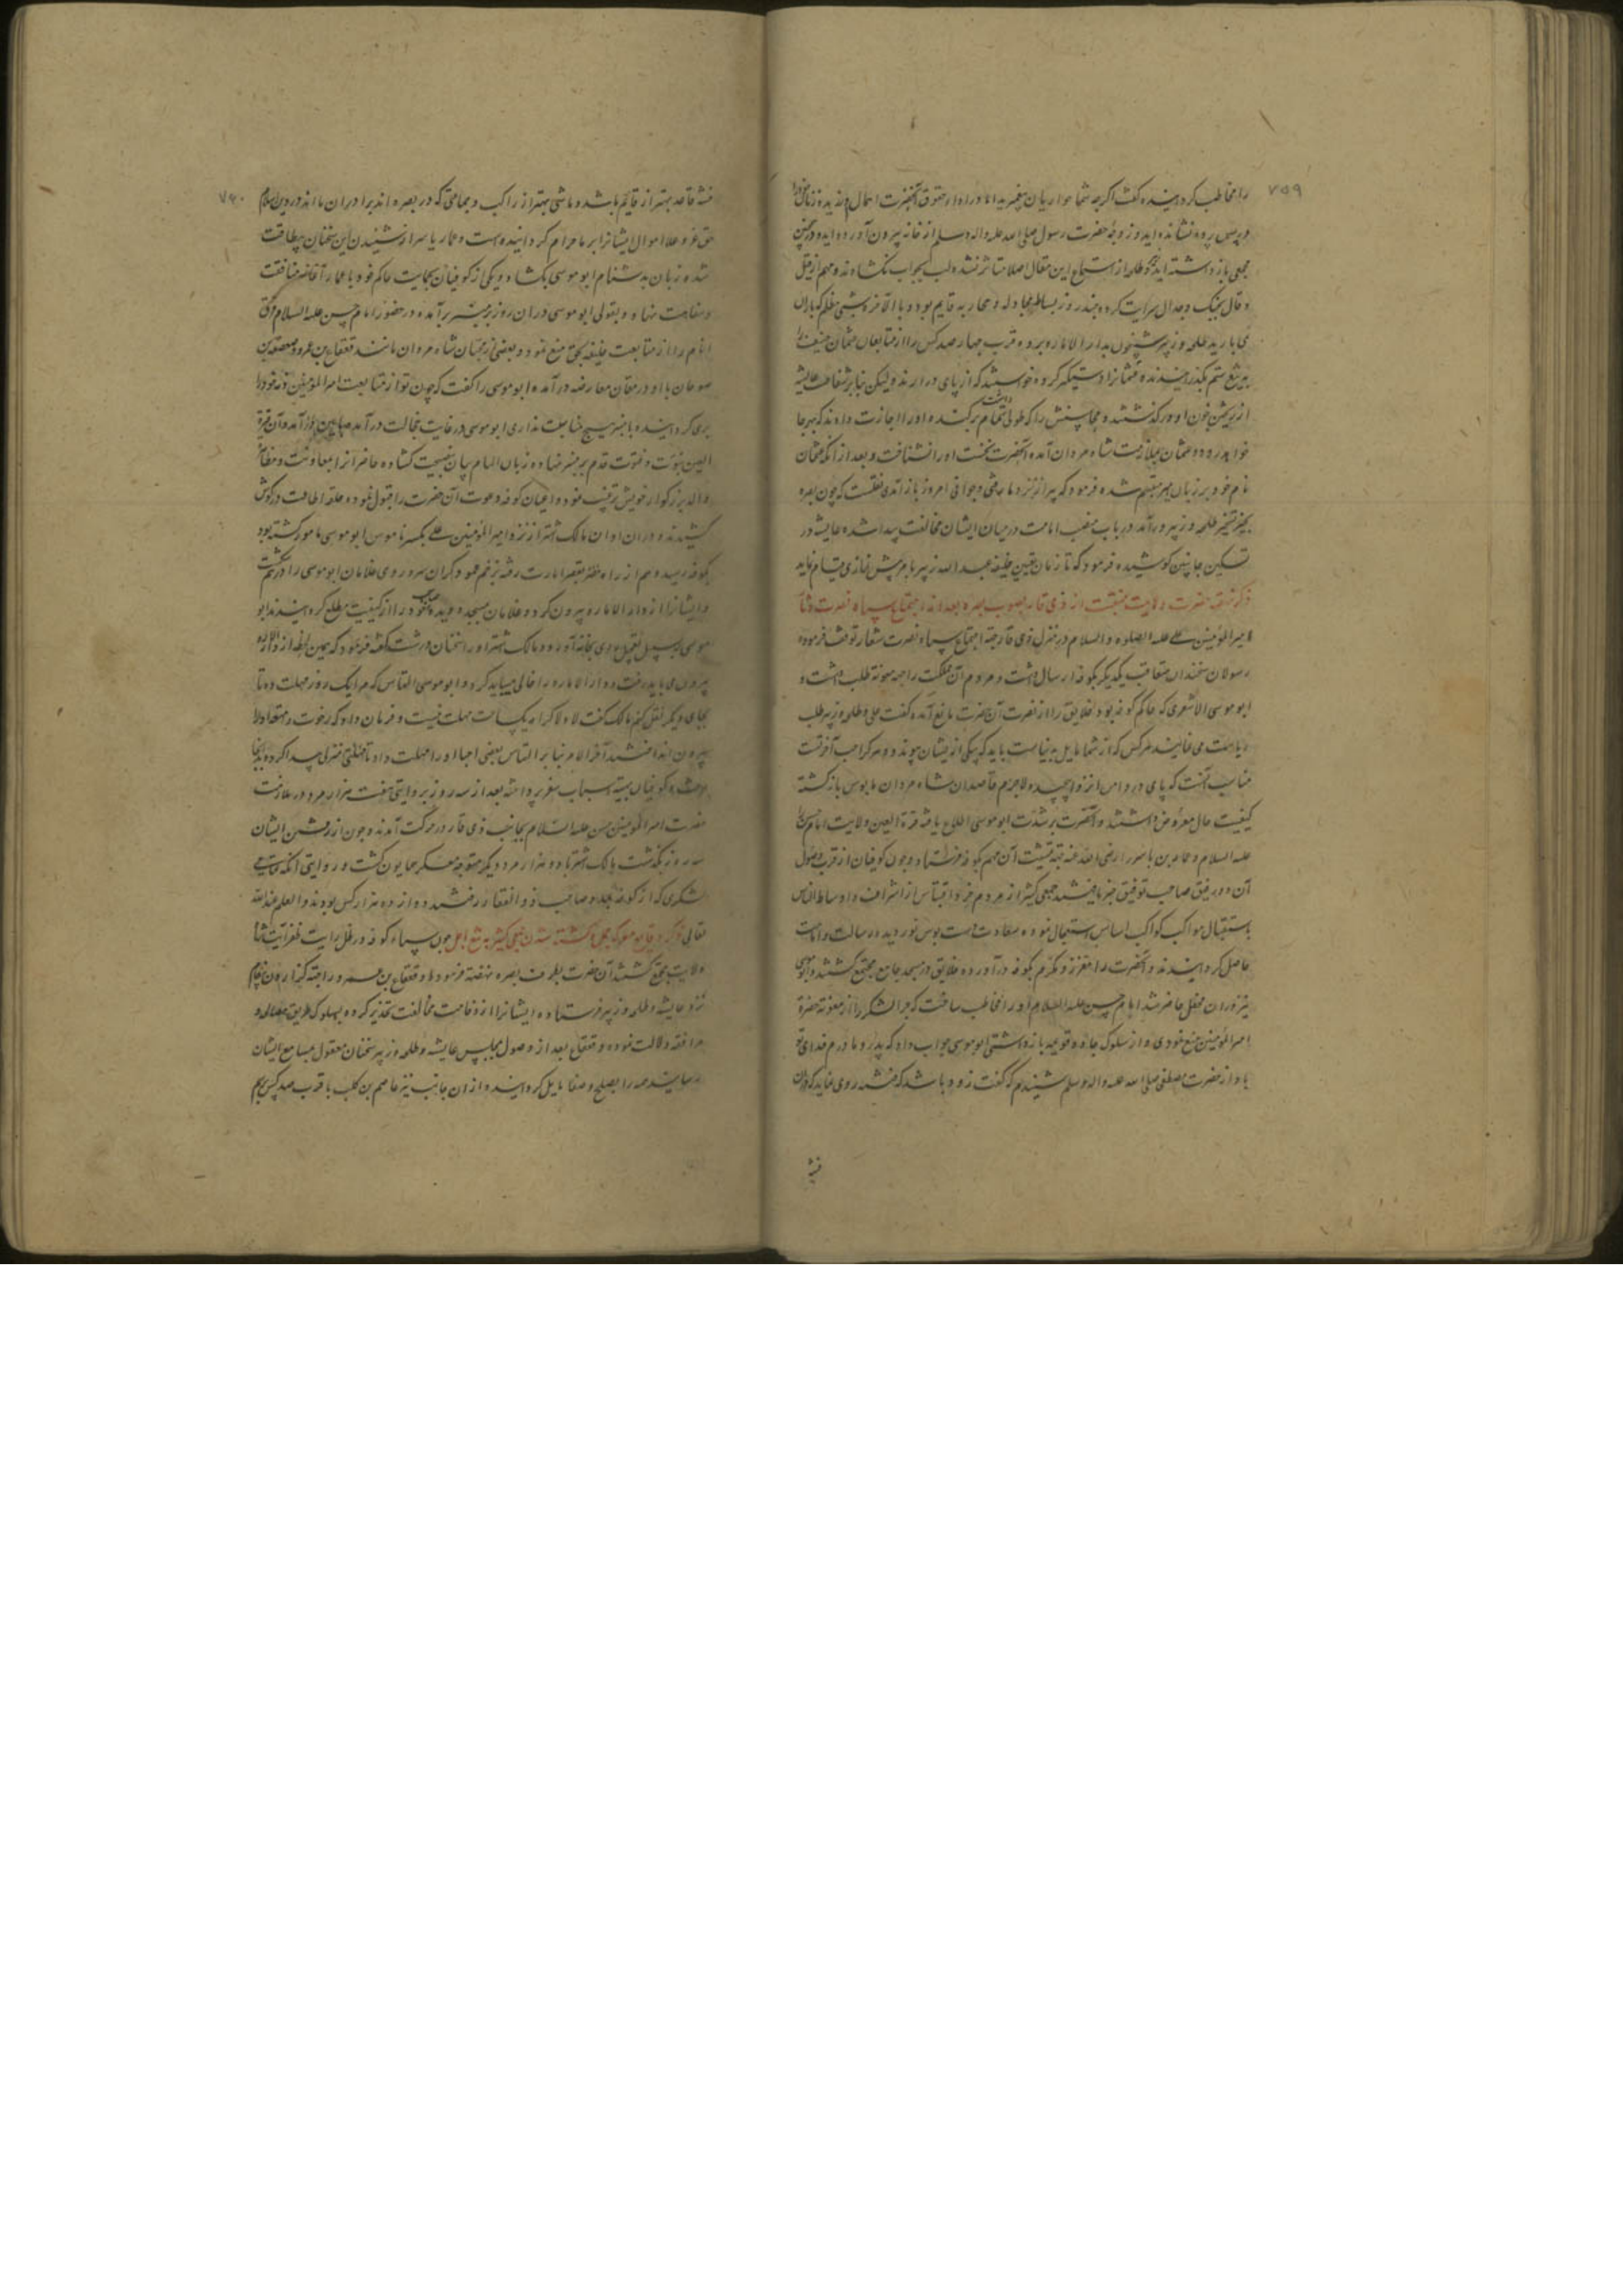 ۷۵۹
را مخاطب گردانیده گفت اگرچه شما حواریان پیغمبرید اما در اداء حقوق آنحضرت اهمال ورزیده زنان خود را
در پس پرده نشانده‌اید و زوجهٔ حضرت رسول صلی الله علیه واله وسلم از خانه بیرون آورده‌اید و در چنین
مجمعی بازداشته‌اید زبیر و طلحه از استماع این مقال اصلا متاثر نشده لب بجواب نگشادند و مهم از قیل
و قال بجنگ و جدال سرایت کرده چند روز بساط مجادله و محاربه قایم بود و بالآخره شبی مظلم که باران
می‌بارید طلحه و زبیر شبیخون بدار الاماره برده قرب چهارصد کس را از متابعان عثمان حنیف را
به تیغ ستم بگذرانیدند و عثمانرا دستگیر کرده خواستند که از پای در آرند لیکن بنابر شفاعت عایشه
از ریختن خون او درگذشتند و محاسنش را که طولی تمام داشت برکندند و او را اجازت دادند که بهرجا
خواهد رود و عثمان بملازمت شاه مردان آمده آنحضرت نخست او را نشناخت و بعد از آنکه عثمان
نام خود بر زبان آورد متبسم شده فرمود که پیر از نزد ما رفتی و جوانی امرد باز آمدی نقلست که چون بصره
بحیز تسخیر طلحه و زبیر در آمد در باب منصب امامت درمیان ایشان مخالفت پیدا شده عایشه در
تسکین جانبین کوشیده فرمود که تا زمان تعیین خلیفه عبد الله زبیر بامر پیش نمازی قیام نماید
ذکر نهضت حضرت ولایت منقبت از ذی قار بصوب بصره بعد از اجتماع سپاه نصرت شعار
امیر المؤمنین علی علیه الصلوه و السلام در منزل ذی قار جهة اجتماع سپاه نصرت شعار توقف فرموده
رسولان سخندان متعاقب یکدیگر بکوفه ارسال داشت و مردم آن مملکت را جهة معونة طلب داشت و
ابو موسی الاشعری که حاکم کوفه بود خلایق را از نصرت آن حضرت مانع آمده گفت علی و طلحه و زبیر طلب
ریاست می‌نمایند هر کس که از شما مایل بدنیاست باید که بیکی از ایشان پیوندد و هر کرا حب آخرتست
مناسب آنست که پای در دامن انزوا پیچد لاجرم قاصدان شاه مردان مایوس بازگشته
کیفیت حال معروض داشتند و آنحضرت بر شدت ابو موسی اطلاع یافته قرة العین ولایت امام حسن
علیه السلام و عمار بن یاسر را رضی الله عنه جهة تمشیت آن مهم بکوفه فرستاد و چون کوفیان از قرب وصول
آن دو رفیق صاحب توفیق خبر یافتند جمعی کثیر از مردم فرق اقتباس از اشراف و اوساط الناس
باستقبال مواکب کواکب اساس استعجال نموده سعادت دست بوس نور دیده رسالت و امامت
حاصل گردانیدند و آنحضرت را معزز و مکرم بکوفه در آورده خلایق در مسجد جامع مجتمع گشتند و ابو موسی
نیز در ان محفل حاضر شد امام حسن علیه السلام او را مخاطب ساخت که چرا لشکر را از معونة حضرة
امیر المؤمنین منع نمودی و از سلوک جاده قویمه بازداشتی ابو موسی جواب داد که پدر و مادرم فدای تو
باد از حضرت مصطفی صلی الله علیه واله وسلم شنیدم که گفت زود باشد که فتنه روی نماید که در ان
فتنه
۷۶۰
فتنه قاعد بهتر از قایم باشد و ماشی بهتر از راکب و جماعتی که در بصره‌اند برادران ما اند در دین اسلام
حق عز و علا اموال ایشانرا بر ما حرام گردانیده است و عمار یاسر از شنیدن این سخنان بیطاقت
شده زبان بدشنام ابو موسی بگشاد و یکی از کوفیان بحمایت حاکم خود با عمار آغاز منافقت
و سفاهت نهاد و بقولی ابو موسی در ان روز بر منبر برآمده در حضور امام حسن علیه السلام فرق
انام را از متابعت خلیفه بحق منع نمود و بعضی از محبان شاه مردان مانند قعقاع بن عمرو و صعصعه بن
صوحان با او در مقام معارضه در آمده ابو موسی را گفت که چون تو از متابعت امیر المؤمنین ذمه خود را
بری گردانیده با منبر هیچ مناسبت نداری ابو موسی در غایت خجالت در آمد از منبر فرود آمد و آن قرة
العین نبوت و فتوت قدم بر منبر نهاده و زبان الهام بیان بنصیحت گشاده حاضرانرا بمعاونت و مظاهرت
والد بزرگوار خویش ترغیب نمود و اعیان کوفه دعوت آن حضرت را قبول نموده حلقه اطاعت در گوش
کشیدند و در ان اوان مالک اشتر از نزد امیر المؤمنین علی بکسر ناموس ابو موسی مامور گشته بود
بکوفه رسید و هم از راه بقصر امارت رفته بزخم عمود گران سر و روی غلامان ابو موسی را درهم شکست
و ایشانرا از دار الاماره بیرون کرد و غلامان بمسجد دویده صاحب خود را از کیفیت مطلع گردانیدند ابو
موسی بر سبیل تعجیل روی بخانه آورد و مالک اشتر او را سخنان درشت گفته فرمود که همین لحظه از دار الاماره
بیرون می‌باید رفت و دار الاماره را خالی می‌باید کرد و ابو موسی التماس کرد مرا یک روز مهلت ده تا
بجای دیگر نقل کنم مالک گفت لا و لا کرامة یکساعت مهلت نیست و فرمان داد که رخوت و امتعه او را
بیرون انداختند آخر الامر بنا بر التماس بعضی احبا او را مهلت داد تا منزلی پیدا کرده بدانجا
رفت و کوفیان بتهیه اسباب سفر پرداخته بعد از سه روز بروایتی هفت هزار مرد در ملازمت
حضرت امیر المؤمنین حسن علیه السلام بجانب ذی قار در حرکت آمدند و چون از رفتن ایشان
سه روز بگذشت مالک اشتر با دو هزار مرد دیگر متوجه معسکر همایون گشت و روایتی آنکه تمامی
لشکری که از کوفه بمدد صاحب ذو الفقار رفتند دوازده هزار کس بودند و العلم عند الله
تعالی ذکر وقایع معرکه جمل و کشته شدن جمعی کثیر به تیغ اجل چون سپاه کوفه در ظل رایت ظفر آیت شاه
ولایت مجتمع گشتند آن حضرت بطرف بصره نهضة فرمود و قعقاع بن عمرو را جهة گذاردن پیغام
نزد عایشه و طلحه و زبیر فرستاده ایشانرا از وخامت مخالفت تحذیر کرده بسلوک طریق مصالحه و
مرافقه دلالت نموده و قعقاع بعد از وصول بمجلس عایشه و طلحه و زبیر سخنان معقول بمسامع ایشان
رسانید همه را بصلح و صفا مایل گردانید و از ان جانب نیز عاصم بن کلیب با قرب صد کس برسم